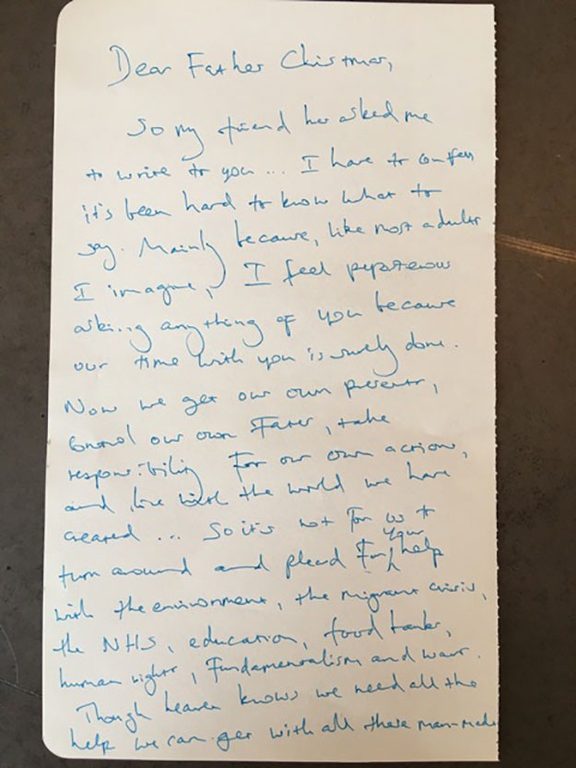 Dear Father Christmas,
So my friend has asked me
to write to you... I have to confess
it's been hard to know what to
say. Mainly because, like most adults
I imagine, I feel preposterous
asking anything of you because
our time with you is surely done.
Now we get our own presents,
control our own fates, take
responsibility for our own actions,
and live with the world we have
created... So it's not for us to
turn around and plead for your help
with the environment, the migrant crisis,
the NHS, education, food banks,
human rights, fundamentalism and war.
Though heaven knows we need all the
help we can get with all these man-made